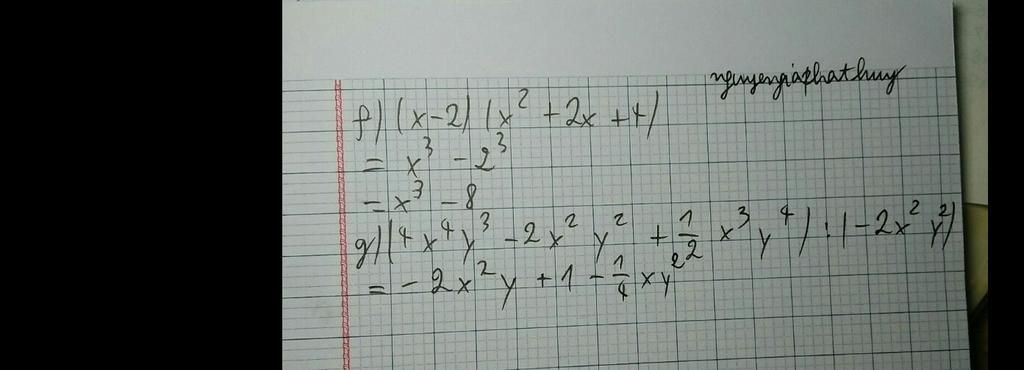 nguyengiaphathuy
f) (x-2) (x² + 2x + 4)
= x³ - 2³
= x³ - 8
g) (4x⁴y³ - 2x²y² + 1/2 x³y⁴) : (-2x²y²)
= -2x²y + 1 - 1/4 xy²